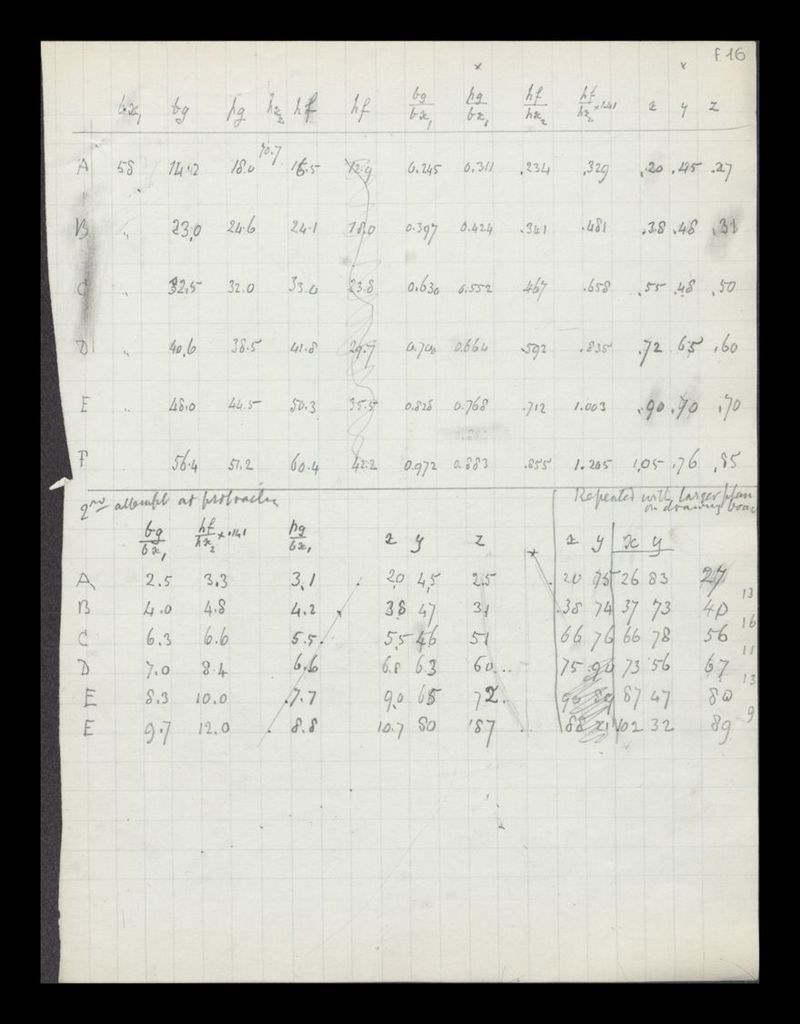 F.16
x x
bx₁ bg pg hx₂ hf hf bg/bx₁ pg/bx₁ hf/hx₂ hf/hx₂ ×1.41 x y z
70.7
A 58 14.2 18.0 16.5 12.9 0.245 0.311 .234 .329 .20 .45 .27
B " 23.0 24.6 24.1 18.0 0.397 0.424 .341 .481 .38 .48 .31
C " 32.5 32.0 33.0 23.8 0.630 0.552 .467 .658 .55 .48 .50
D " 40.6 38.5 41.8 29.7 0.700 0.664 .592 .835 .72 65 .60
E " 48.0 44.5 50.3 35.5 0.828 0.768 .712 1.003 .90 .70 .70
F 56.4 51.2 60.4 42.2 0.972 0.883 .855 1.205 1.05 .76 .85
2nd attempt at protraction
Repeated with larger plan
on drawing board
bg/bx₁ hf/hx₂ ×.141 pg/bx₁ x y z x y x y
A 2.5 3.3 3.1 20 45 25 20 75 26 83 27
B 4.0 4.8 4.2 38 47 31 38 74 37 73 40 13
C 6.3 6.6 5.5 55 46 51 66 76 66 78 56 16
D 7.0 8.4 6.6 68 63 60 75 90 73 56 67 11
E 8.3 10.0 7.7 90 68 72 87 47 80 13
E 9.7 12.0 8.8 10.7 80 87 88 102 32 89 9